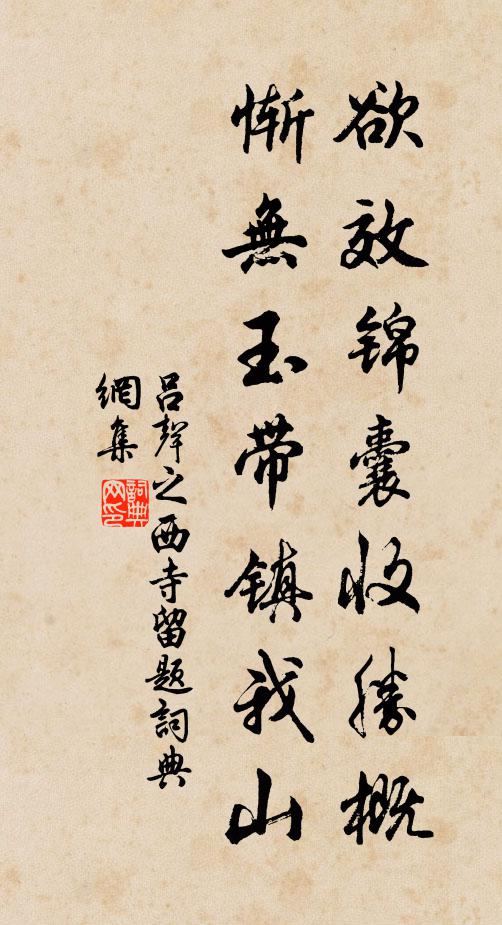 欲效锦囊收勝概
慚無玉带镇我山
吕聲之西寺留题詞典
網集
詞典
网印